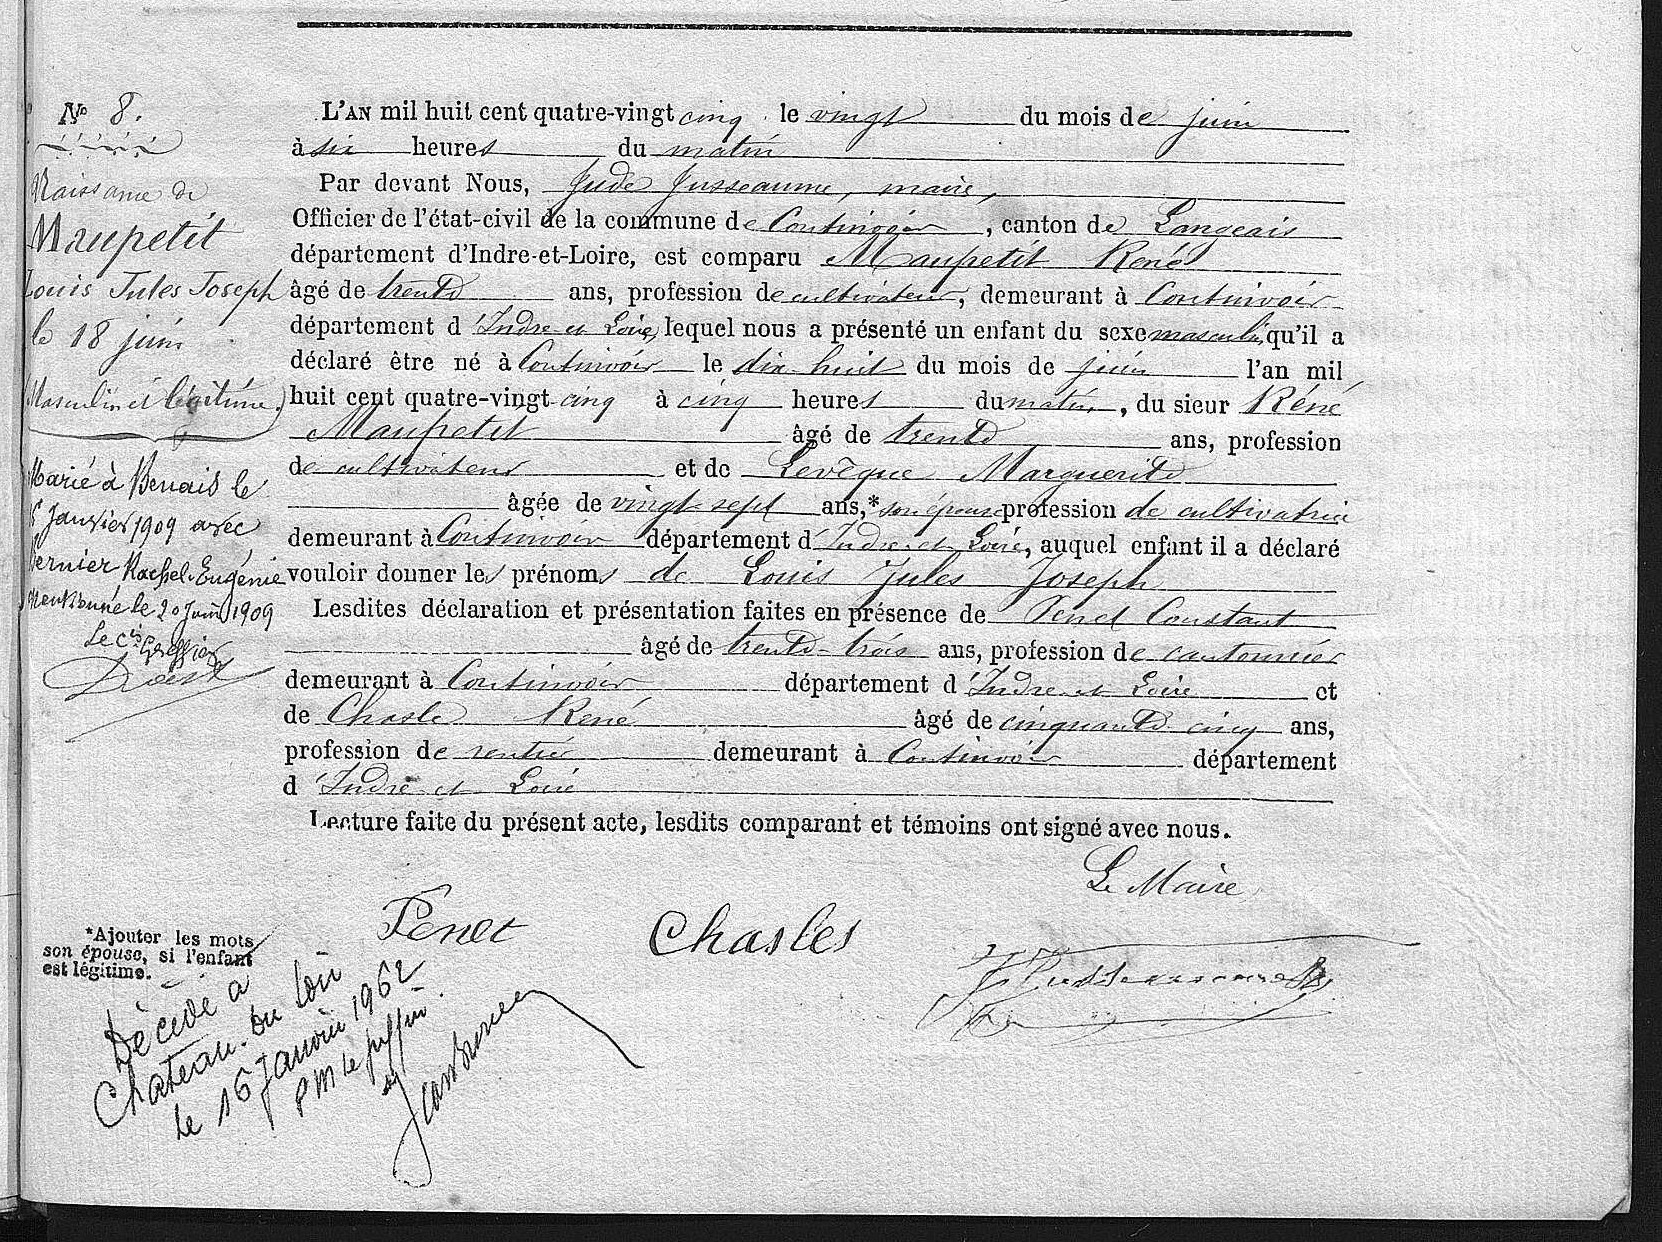 Nº 8.
Naissance de
Maupetit
Louis Jules Joseph
le 18 juin
(Masculin et légitime.)
Marié à Benais le
Janvier 1909 avec
Vernier Rachel-Eugénie
Mentionné le 20 Juin 1909
Le cis Greffier
L'AN mil huit cent quatre-vingt cinq le vingt du mois de juin
à six heures du matin
Par devant Nous, Jude Jusseaume, maire,
Officier de l'état-civil de la commune de Continvoir, canton de Langeais
département d'Indre-et-Loire, est comparu Maupetit René
âgé de trente ans, profession de cultivateur, demeurant à Continvoir
département d'Indre et Loire, lequel nous a présenté un enfant du sexe masculin qu'il a
déclaré être né à Continvoir le dix huit du mois de juin l'an mil
huit cent quatre-vingt-cinq à cinq heures du matin, du sieur Réné
Maupetit âgé de trente ans, profession
de cultivateur et de Levêque Marguerite
âgée de vingt-sept ans,* son épouse profession de cultivatrice
demeurant à Continvoir département d'Indre et Loire, auquel enfant il a déclaré
vouloir donner les prénoms de Louis Jules Joseph
Lesdites déclaration et présentation faites en présence de Penet Constant
âgé de trente-trois ans, profession de cantonnier
demeurant à Continvoir département d'Indre et Loire et
de Chasle René âgé de cinquante cinq ans,
profession de rentier demeurant à Continvoir département
d'Indre et Loire
Lecture faite du présent acte, lesdits comparant et témoins ont signé avec nous.
Le Maire
Penet Chasles
*Ajouter les mots
son épouse, si l'enfant
est légitime.
Décédé à
Chateau-du Loir
le 16 Janvier 1962